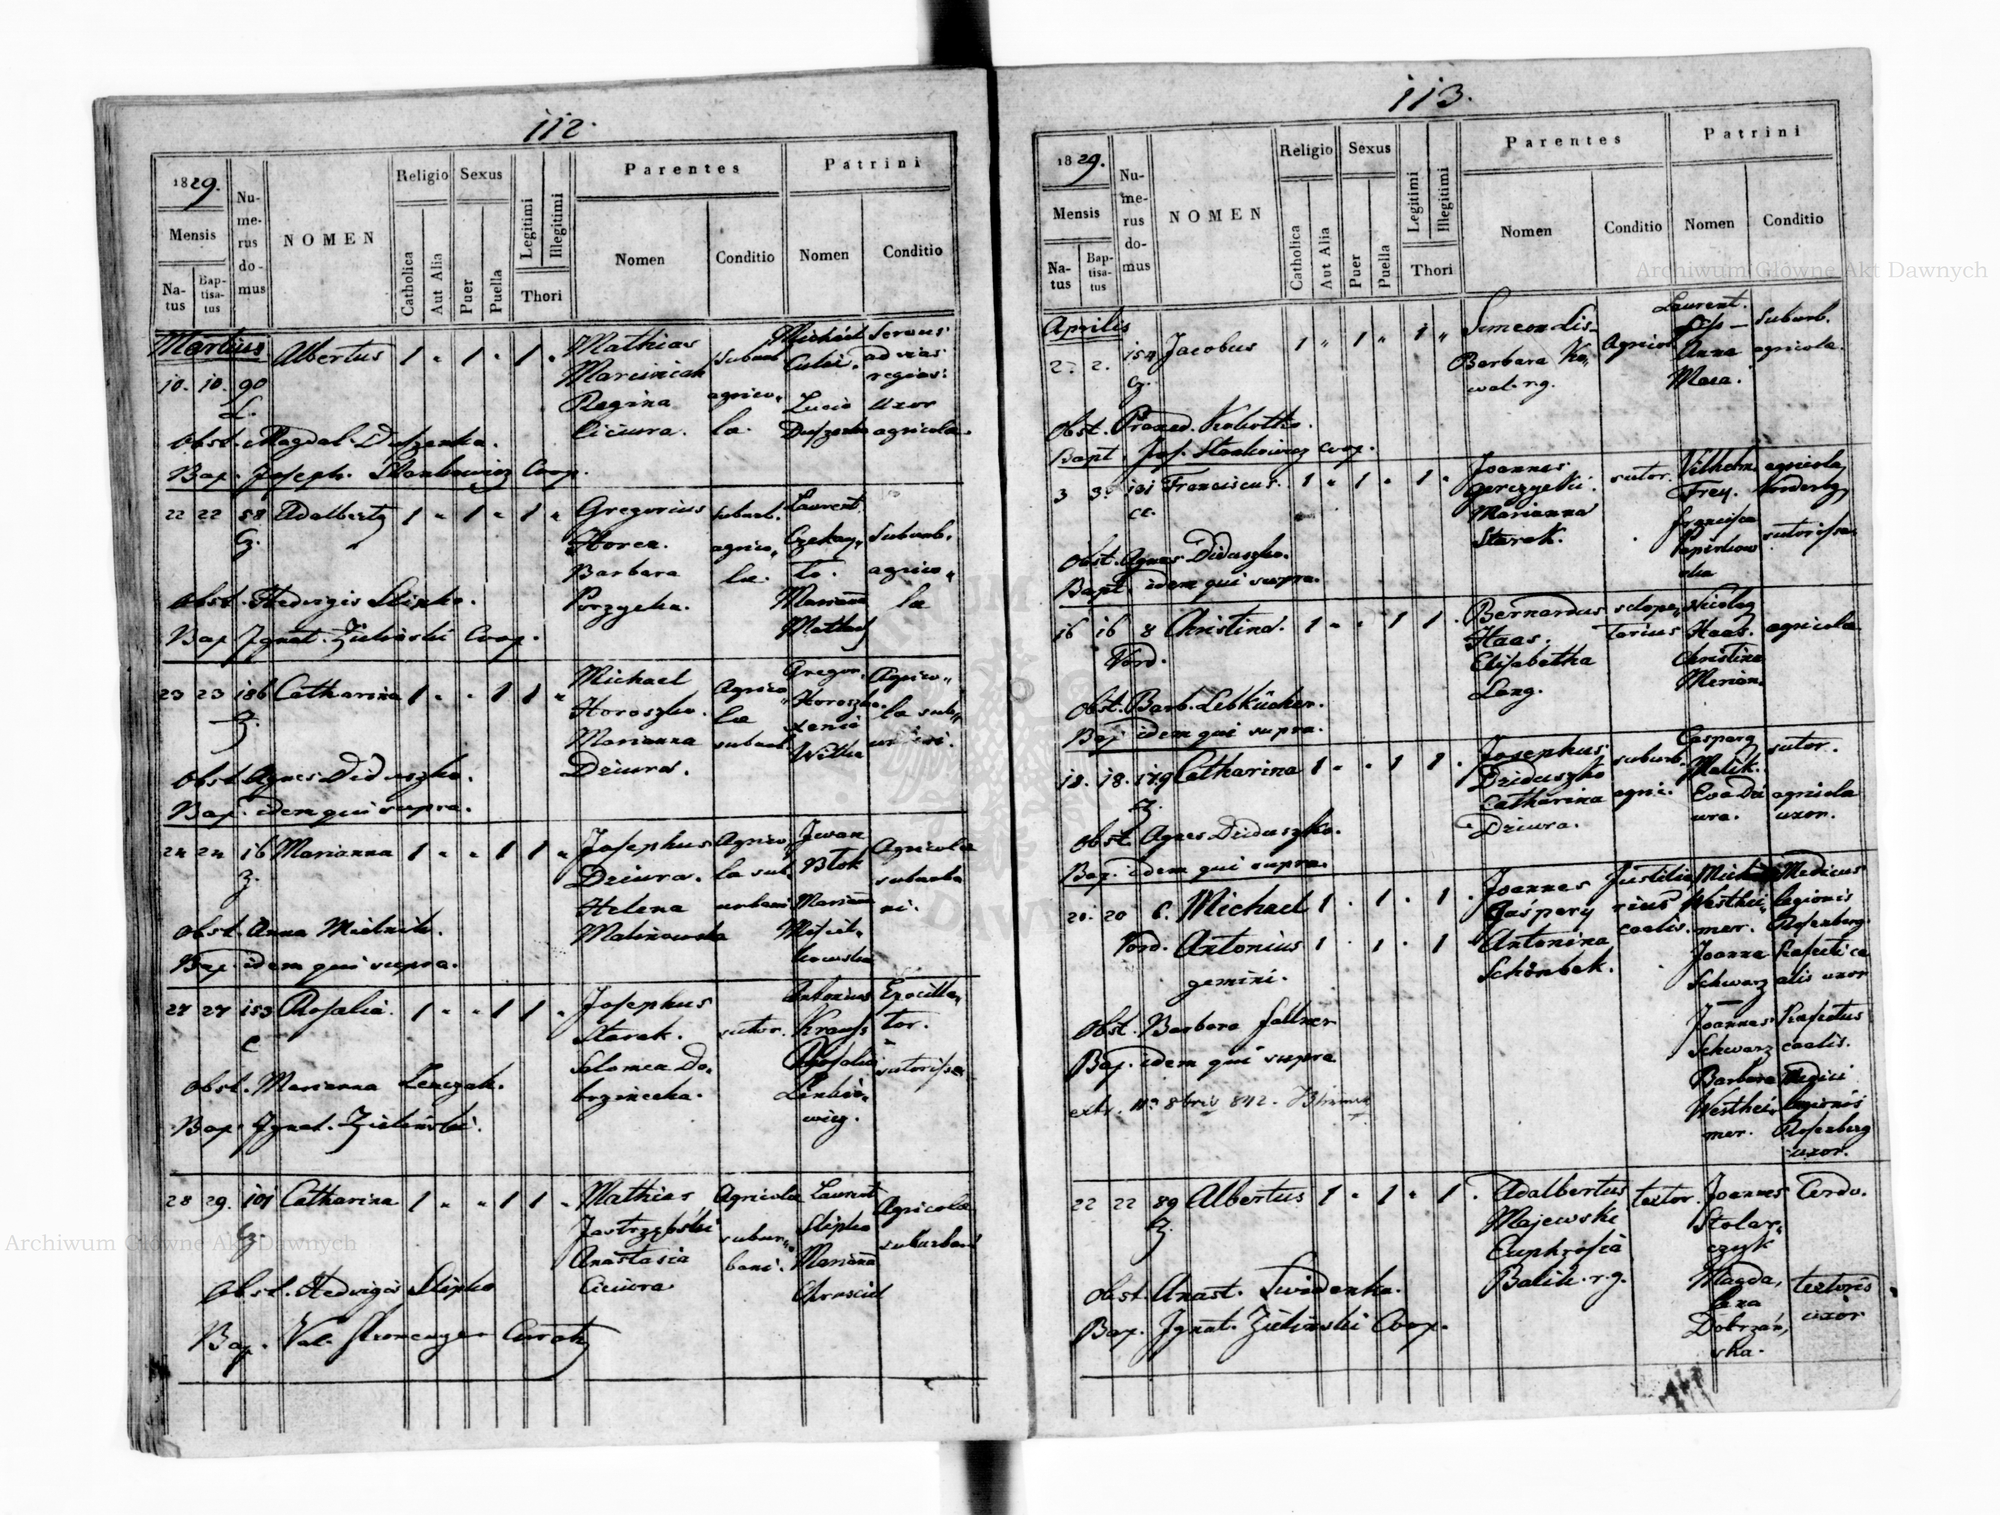 112.
1829.
Mensis
Na-
tus
Bap-
tisa-
tus
Nu-
me-
rus
do-
mus
NOMEN
Religio
Catholica
Aut Alia
Sexus
Puer
Puella
Legitimi
Illegitimi
Thori
Parentes
Nomen
Conditio
Patrini
Nomen
Conditio
Martius
10. 10. 90 Albertus 1 " 1 " 1 "
Mathias
Marciniak
Regina
Ciciura.
suburb
agrico,
la.
Michael
Lucia
Duszenka
Servus
ad vias
regias.
uxor
agricola.
Obst. Magdal. Duszenka.
Bap. Joseph. Stankowicz Coop.
22 22 58 Adalbertg 1 " 1 " 1 "
Gregorius
Horca.
Barbara
Porzycka.
suburb.
agrico,
la.
Laurent.
Czekay,
lo.
Mariana
suburb.
agrico,
la
Obst. Hedvigis Slipko.
Bap. Ignat. Zieliński Coop.
23 23 186 Catharina 1 " " 1 1 "
Z.
Michael
Horoszko.
Marianna
Dziura.
Agrico
la
suburb.
Gregor.
Horoszko.
Xenia
Witka
Agrico,,
la sub,,
Obst. Agnes Diduszko.
Bap. idem qui supra.
24 24 16 Marianna 1 " " 1 1 "
Z.
Josephus
Dziura.
Helena
Malinowska
Agrico,
la sub,
urbani
Iwan
Blok
Mariana
Agricola
suburba
ni.
Obst. Anna Mielnik.
Bap. idem qui supra.
27 27 153 Rosalia. 1 " " 1 1 "
c
Josephus
Starak.
Salomea Do,
brzinecka.
sutor.
Antonius
Krauss
Rosalia
wicz.
tor.
sutorissa.
Obst. Marianna Lenczak.
Bap. Ignat. Zieliński.
28 29. 101 Catharina 1 " " 1 1 "
Mathias
Jastrzębski
Anastasia
Ciciura
Agricola
subur,,
bani.
Laurent
Slipko
Mariana
Agricola
suburbani
Obst. Hedvigis Slipko
Bap. Val. Curatg
113.
1829.
Mensis
Na-
tus
Bap-
tisa-
tus
Nu-
me-
rus
do-
mus
NOMEN
Religio
Catholica
Aut Alia
Sexus
Puer
Puella
Legitimi
Illegitimi
Thori
Parentes
Nomen
Conditio
Patrini
Nomen
Conditio
Aprilis
2. 2. 154 Jacobus 1 " 1 " 1 "
Simeon Lis
Barbara Ko,
wal. r.g.
Agricol
Laurent.
Anna
Maca.
suburb.
agricola.
Obst. Franco. Kobotko.
Bapt. Jos. Stankowicz coop.
3 3. 101 Franciscus. 1 " 1 " 1 "
Joannes
Marianna
Starak.
sutor.
Vilhelm.
Frey.
Francisca
agricola
sutorissa
Obst. Agnes Diduszko.
Bapt. idem qui supra.
16 16 8 Christina. 1 " " 1 1 "
Vord.
Bernardus
Haas.
Elisabetha
Lang.
sclope,
tarius
Nicolag
Haas.
Christina
Merian.
agricola
Obst. Barb. Lebkücher.
Bap. idem qui supra.
18. 18. 179 Catharina 1 " " 1 1 "
Z.
Josephus
Dziduszko
Catharina
Dziura.
suburb.
agric.
Casparg
Malik.
Eva Dzi
ura.
sutor.
agricola
uxor.
Obst. Agnes Diduszko.
Bap. idem qui supra.
20. 20 6. Michael 1 . 1 . 1 .
Vord. Antonius 1 . 1 . 1
gemini.
Joannes
Gaspary
Antonina
Schönbek.
Justitia
rius
caalis.
Michael
Westhei,
mer.
Joanna
Schwarz
Medicus
legionis
Rosenberg.
Prafecti ca
alis uxor
Joannes
Schwarz
Barbara
Westhei,
mer.
Prafectus
caalis.
Medici
legionis
Rosenberg
uxor.
Obst. Barbara Fellner
Bap. idem qui supra
extr. 8bris 842.
22 22 89 Albertus 1 " 1 " 1 .
Z.
Adalbertus
Majewski
Euphrosia
Balik. r.g.
textor.
Joannes
Stolar,
czyk
Magda,
lena
Dobrzań,
ska.
Cerdo.
textoris
uxor
Obst. Anast. Swidenka.
Bap. Ignat. Zieliński Coop.
Archiwum Główne Akt Dawnych
Archiwum Główne Akt Dawnych